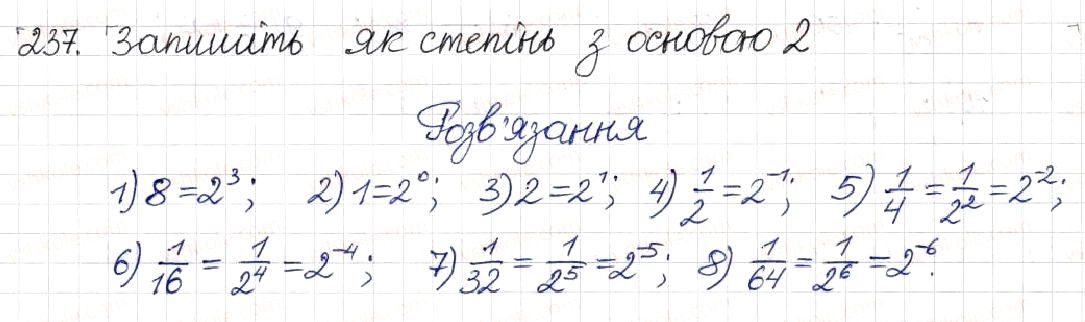 237. Запишіть як степінь з основою 2
Розв'язання
1) 8 = 2³; 2) 1 = 2⁰; 3) 2 = 2¹; 4) 1/2 = 2⁻¹; 5) 1/4 = 1/2² = 2⁻²;
6) 1/16 = 1/2⁴ = 2⁻⁴; 7) 1/32 = 1/2⁵ = 2⁻⁵; 8) 1/64 = 1/2⁶ = 2⁻⁶.